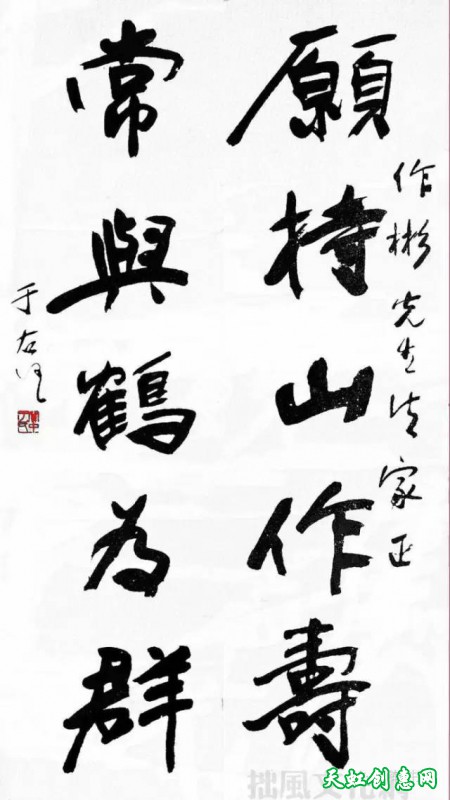 作彬先生法家正
願持山作壽
常與鶴為群
于右任
天虹创惠网
拙風文化網